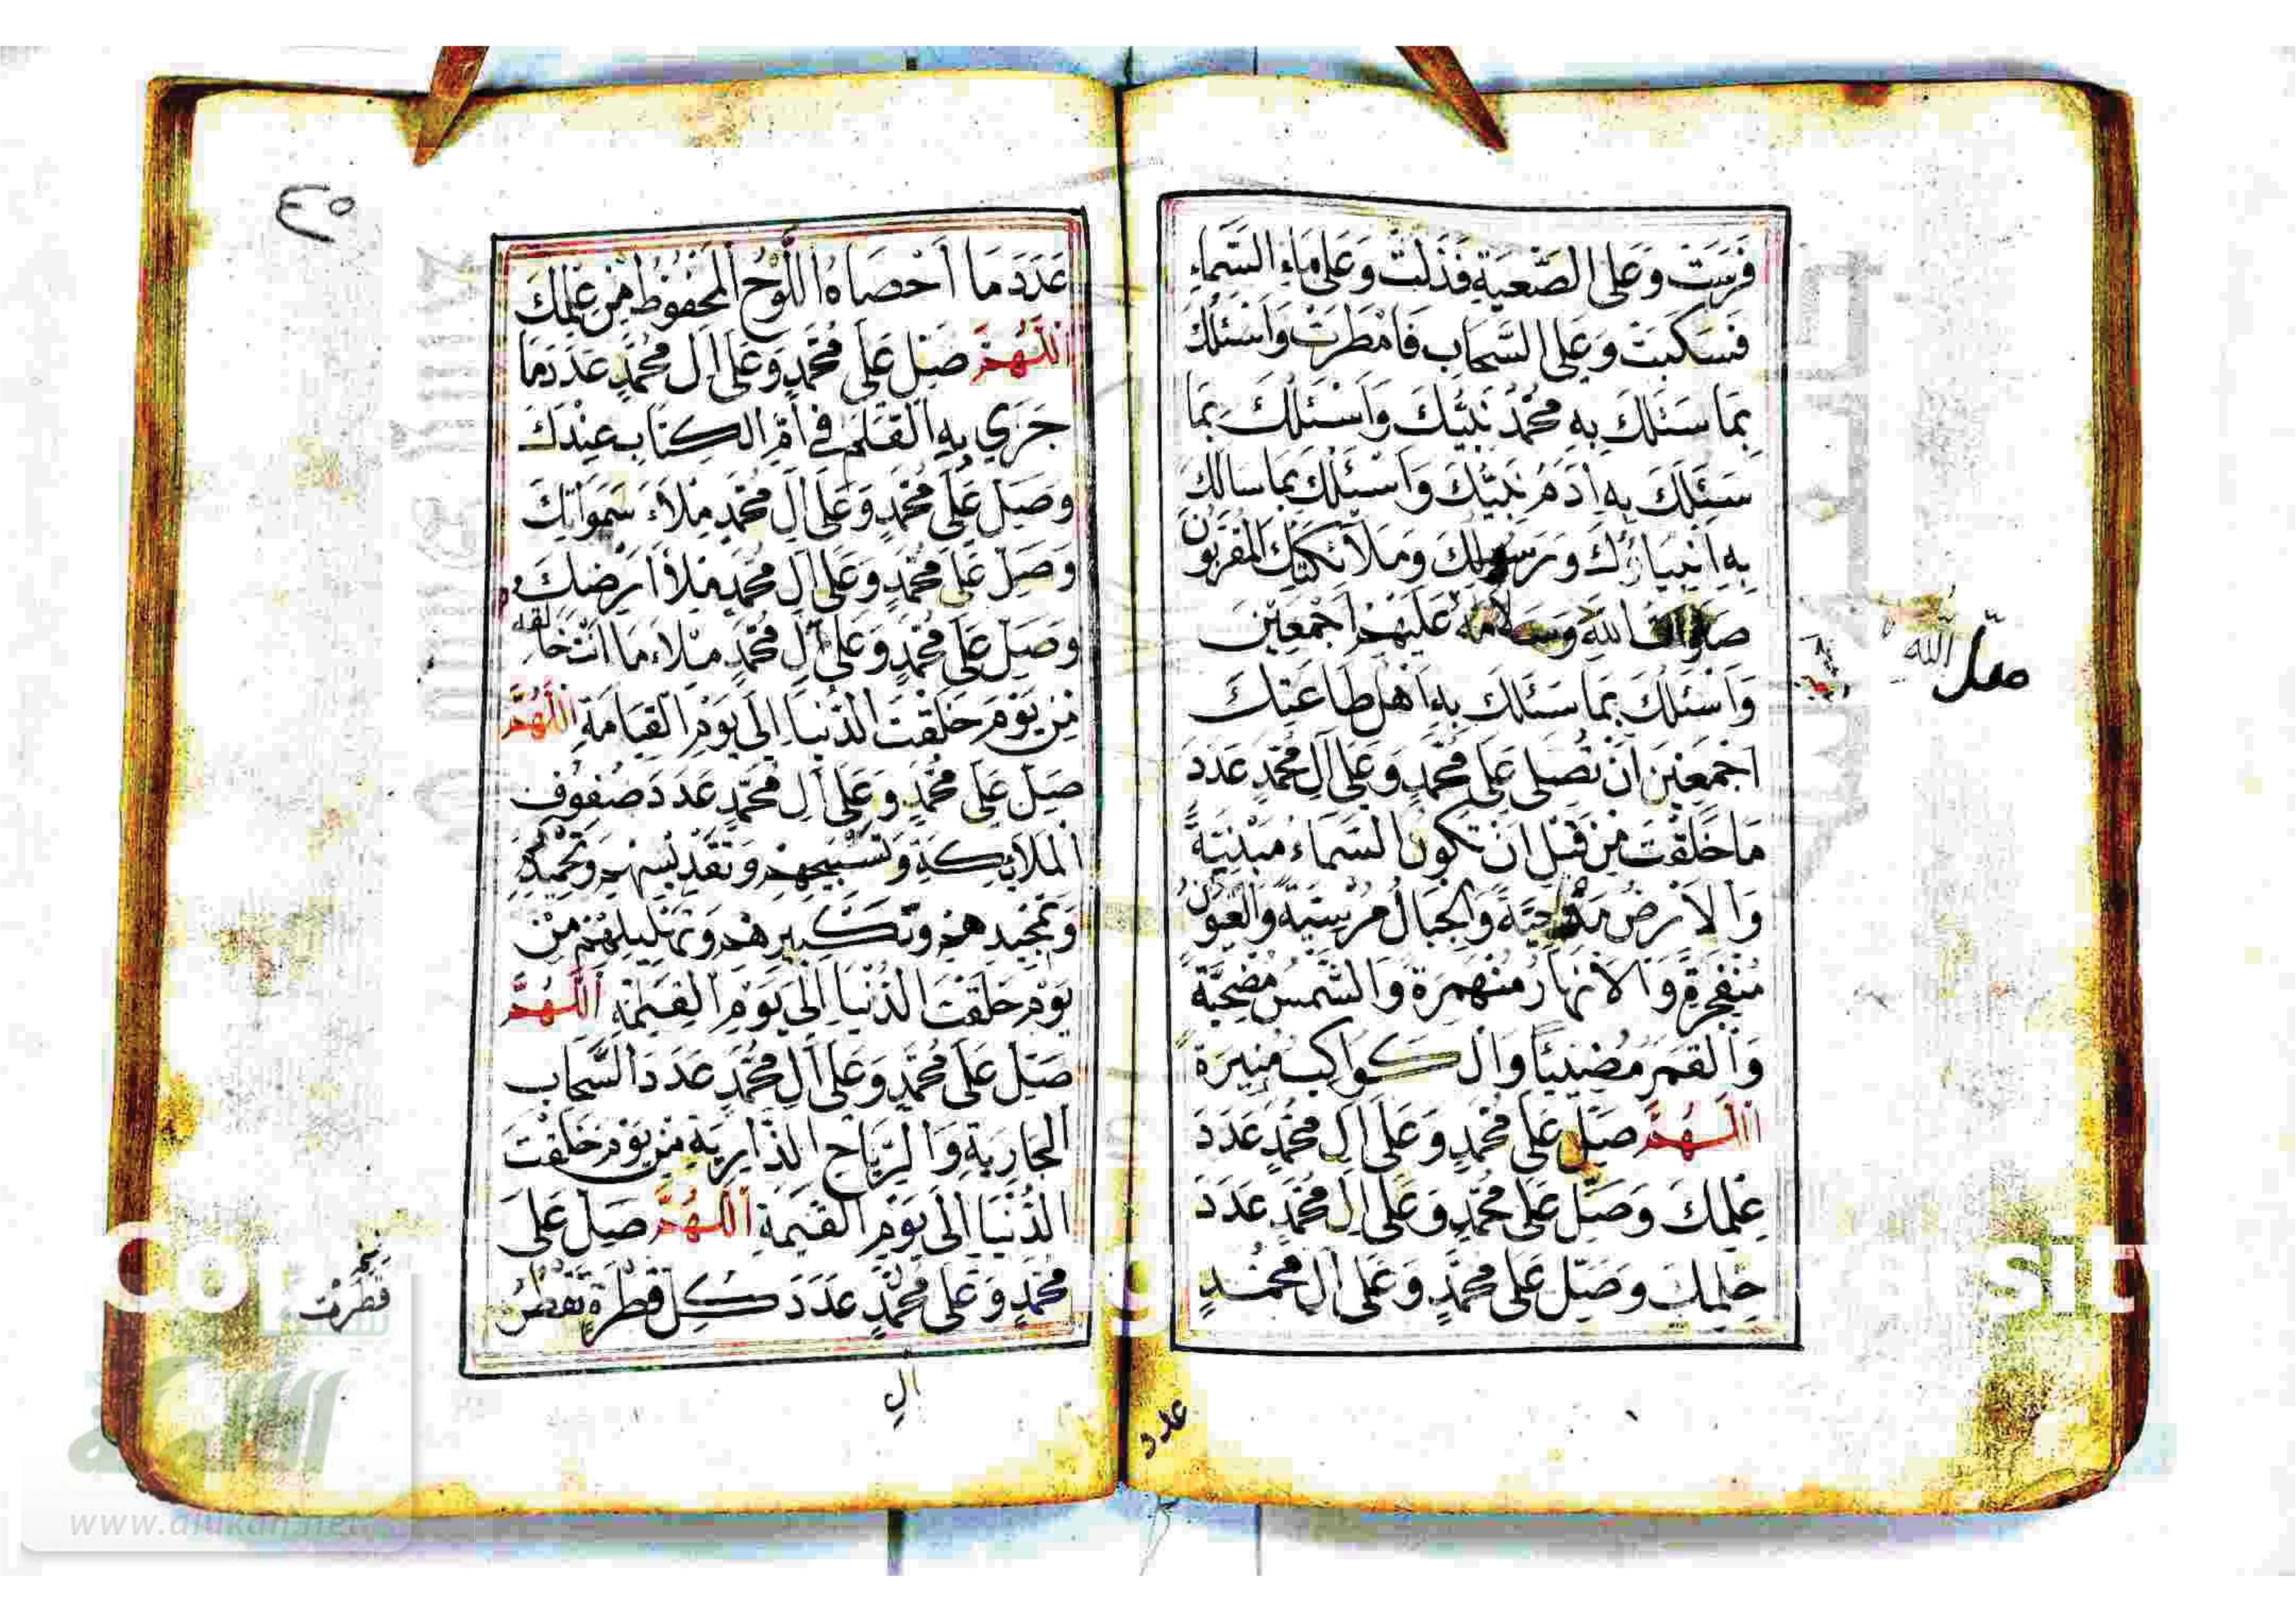 فَرَسَتْ وَعَلَى الصَّعْبَةِ فَذَلَّتْ وَعَلَى مَاءِ السَّمَاءِ
فَسَكَبَتْ وَعَلَى السَّحَابِ فَامْطَرَتْ وَاَسْئَلُكَ
بِمَا سَئَلَكَ بِهِ مُحَمَّدٌ نَبِيُّكَ وَاَسْئَلُكَ بِمَا
سَئَلَكَ بِهِ اٰدَمُ نَبِيُّكَ وَاَسْئَلُكَ بِمَا سَالَكَ
بِهِ اَنْبِيَاؤُكَ وَرَسُولُكَ وَمَلَائِكَتُكَ المُقَرَّبُونَ
صَلَوَاتُ اللّٰهِ وَسَلَامُهُ عَلَيْهِمْ اَجْمَعِيْنَ
وَاَسْئَلُكَ بِمَا سَئَلَكَ بِهِ اَهْلُ طَاعَتِكَ
اَجْمَعِيْنَ اَنْ تُصَلِّي عَلَى مُحَمَّدٍ وَعَلَى آلِ مُحَمَّدٍ عَدَدَ
مَا خَلَقْتَ مِنْ قَبْلِ اَنْ تَكُونَ السَّمَاءُ مَبْنِيَّةً
وَالْاَرْضُ مَدْحِيَّةً وَالْجِبَالُ مُرْسِيَةً وَالْعُيُونُ
مُنْفَجِرَةً وَالْاَنْهَارُ مُنْهَمِرَةً وَالشَّمْسُ مُضْحِيَةً
وَالْقَمَرُ مُضِيْئًا وَالْكَوَاكِبُ مُنِيْرَةً
اَللّٰهُمَّ صَلِّ عَلَى مُحَمَّدٍ وَعَلَى اٰلِ مُحَمَّدٍ عَدَدَ
عِلْمِكَ وَصَلِّ عَلَى مُحَمَّدٍ وَعَلَى اٰلِ مُحَمَّدٍ عَدَدَ
حِلْمِكَ وَصَلِّ عَلَى مُحَمَّدٍ وَعَلَى اٰلِ مُحَمَّدٍ
صلى الله
عدد
٤٥
عَدَدَ مَا اَحْصَاهُ اللَّوْحُ الْمَحْفُوْظُ مِنْ عِلْمِكَ
اَللّٰهُمَّ صَلِّ عَلَى مُحَمَّدٍ وَعَلَى اٰلِ مُحَمَّدٍ عَدَدَ مَا
جَرَي بِهِ الْقَلَمُ فِي اُمِّ الْكِتَابِ عِنْدَكَ
وَصَلِّ عَلَى مُحَمَّدٍ وَعَلَى اٰلِ مُحَمَّدٍ مِلْاَءَ سَمَوَاتِكَ
وَصَلِّ عَلَى مُحَمَّدٍ وَعَلَى اٰلِ مُحَمَّدٍ مِلْاَ اَرْضِكَ
وَصَلِّ عَلَى مُحَمَّدٍ وَعَلَى آلِ مُحَمَّدٍ مِلْاَءَ مَا اَنْتَ خَالِقُهُ
مِنْ يَوْمِ خَلَقْتَ الدُّنْيَا اِلَى يَوْمِ الْقِيَامَةِ اَللّٰهُمَّ
صَلِّ عَلَى مُحَمَّدٍ وَعَلَى اٰلِ مُحَمَّدٍ عَدَدَ صُفُوْفِ
الْمَلَائِكَةِ وَتَسْبِيْحِهِمْ وَتَقْدِيْسِهِمْ وَتَحْمِيْدِهِمْ
وَتَمْجِيْدِهِمْ وَتَكْبِيْرِهِمْ وَتَهْلِيْلِهِمْ مِنْ
يَوْمِ خَلَقْتَ الدُّنْيَا اِلَى يَوْمِ الْقِيٰمَةِ اَللّٰهُمَّ
صَلِّ عَلَى مُحَمَّدٍ وَعَلَى اٰلِ مُحَمَّدٍ عَدَدَ السَّحَابِ
الْجَارِيَةِ وَالرِّيَاحِ الذَّارِيَةِ مِنْ يَوْمِ خَلَقْتَ
الدُّنْيَا اِلَى يَوْمِ الْقِيٰمَةِ اَللّٰهُمَّ صَلِّ عَلَى
مُحَمَّدٍ وَعَلَى مُحَمَّدٍ عَدَدَ كُلِّ قَطْرَةٍ تَقْطُرُ
قَطَرَتْ
الِ
www.alukah.net